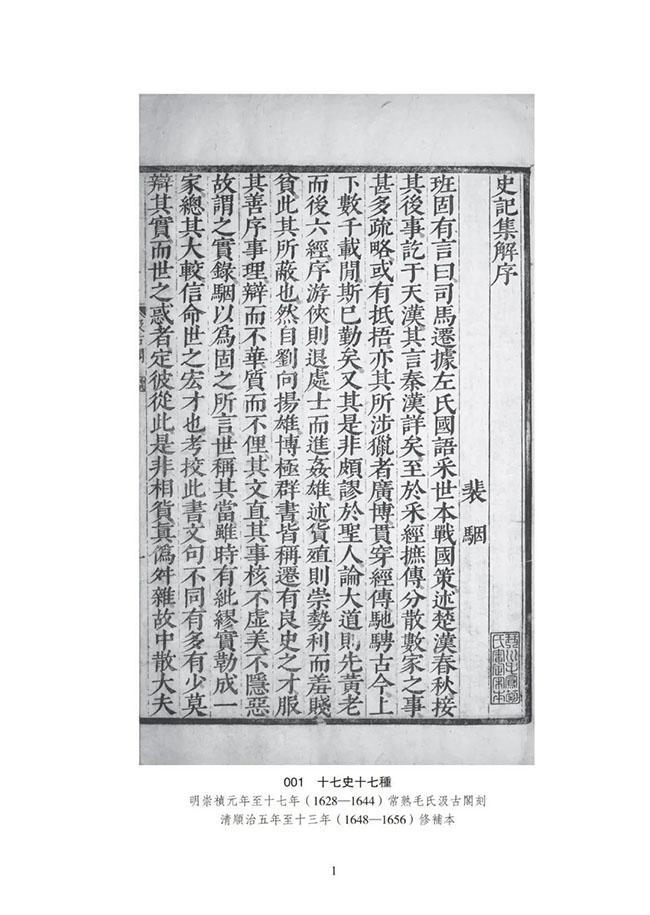 史記集解序
裴駰
班固有言曰司馬遷據左氏國語采世本戰國策述楚漢春秋接
其後事訖于天漢其言秦漢詳矣至於采經摭傳分散數家之事
甚多疏略或有抵捂亦其所涉獵者廣博貫穿經傳馳騁古今上
下數千載閒斯已勤矣又其是非頗謬於聖人論大道則先黃老
而後六經序游俠則退處士而進姦雄述貨殖則崇勢利而羞賤
貧此其所蔽也然自劉向揚雄博極群書皆稱遷有良史之才服
其善序事理辯而不華質而不俚其文直其事核不虛美不隱惡
故謂之實錄駰以為固之所言世稱其當雖時有紕繆實勒成一
家總其大較信命世之宏才也考挍此書文句不同有多有少莫
辯其實而世之惑者定彼從此是非相貿真偽舛雜故中散大夫
001 十七史十七種
明崇禎元年至十七年（1628—1644）常熟毛氏汲古閣刻
清順治五年至十三年（1648—1656）修補本
1